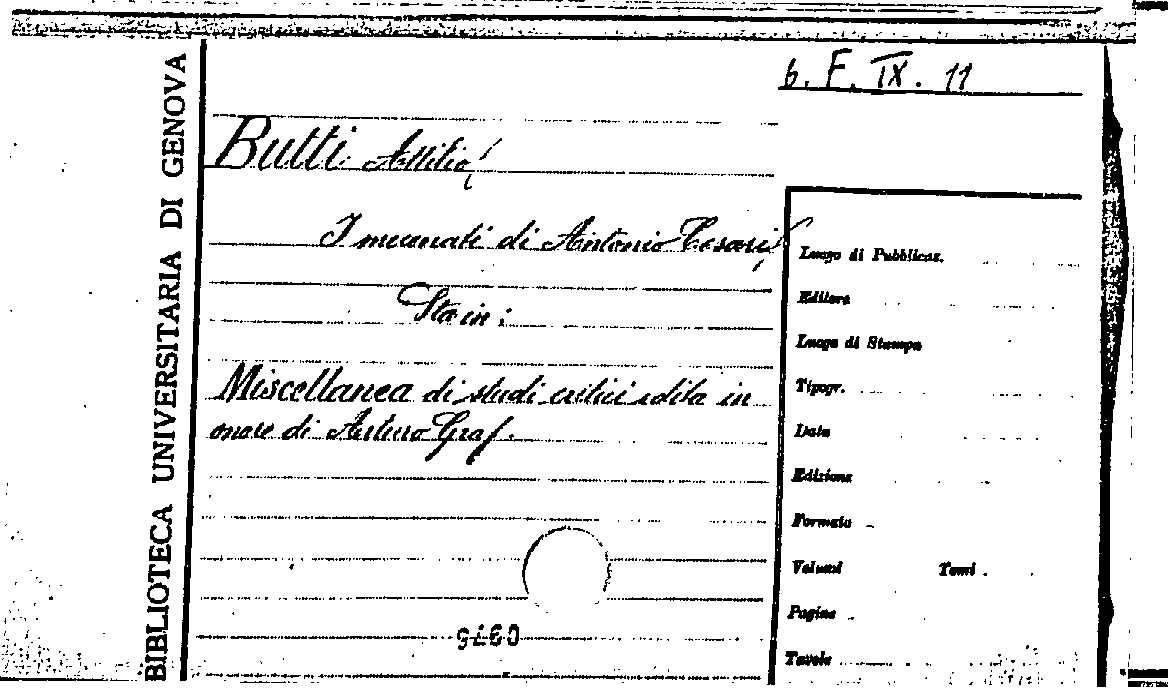 6. F. IX. 11
BIBLIOTECA UNIVERSITARIA DI GENOVA
Butti Attilio,
I mecenati di Antonio Cesari,
Sta in:
Miscellanea di studi critici edita in
onore di Arturo Graf.
Luogo di Pubblicaz.
Editore
Luogo di Stampa
Tipogr.
Data
Edizione
Formato
Volumi Tomi
Pagine
Tavole